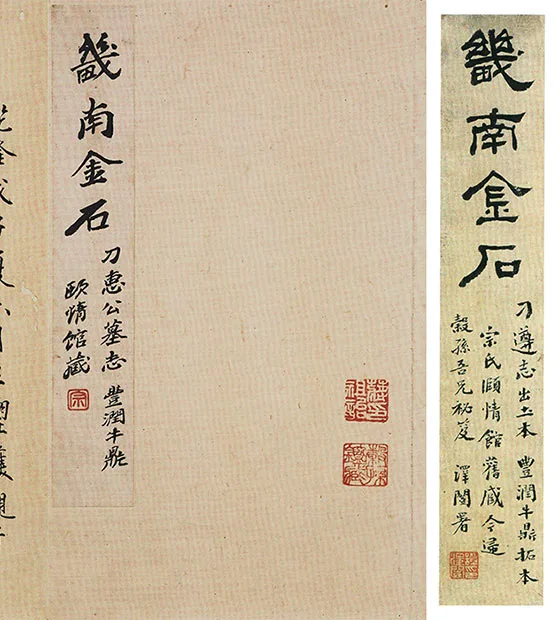 畿南金石
刁惠公墓志 豐潤牛鼎
頤情館藏
宗
畿南金石
刁遵志出土本 豐潤牛鼎拓本
宗氏頤情館舊藏今歸
穀孫吾兄祕笈 澤闓署